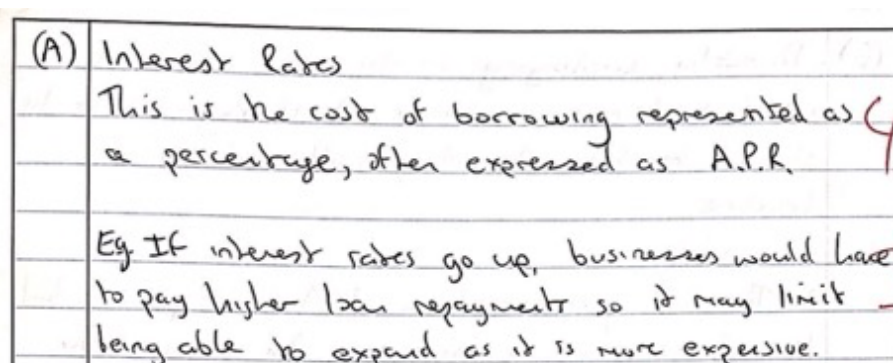 (A) Interest Rates
This is the cost of borrowing represented as
a percentage, often expressed as A.P.R.
Eg. If interest rates go up, businesses would have
to pay higher loan repayments so it may limit
being able to expand as it is more expensive.